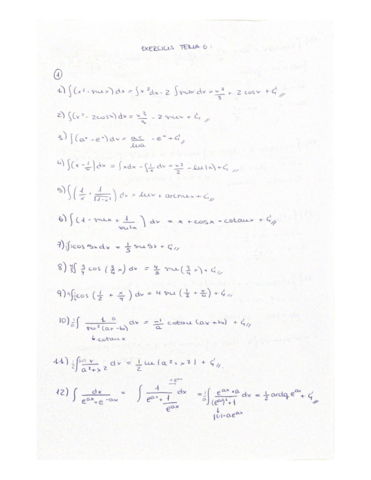 EXERCICIS TEMA 0:
①
1) ∫(x² - sin x) dx = ∫x² dx - 2 ∫sin x dx = x³/3 + 2 cos x + C,,
2) ∫(x² - 2cos x) dx = x³/3 - 2 sin x + C,,
3) ∫(aˣ - eˣ) dx = aˣ/ln a - eˣ + C,,
4) ∫(x - 1/x) dx = ∫x dx - ∫1/x dx = x²/2 - ln(x) + C,,
5) ∫(1/x + 1/√(1-x²)) dx = ln x + arcsin x + C,,
6) ∫(1 - sin x + 1/sin²x) dx = x + cos x - cotan x + C,,
7) ∫cos 5x dx = 1/5 sin 5x + C,,
8) ∫ cos (3/4 x) dx = 4/3 sin (3/4 x) + C,,
9) ∫cos (1/2 + x/4) dx = 4 sin (1/2 + x/4) + C,,
10) ∫ a/sin²(ax+b) dx = -1/a cotan (ax+b) + C,,
cotan x
11) 1/2 ∫ x/(a²+x²) dx = 1/2 ln (a²+x²) + C,,
12) ∫ dx/(eᵃˣ+e⁻ᵃˣ) = ∫ 1/(eᵃˣ+1/eᵃˣ) dx = ∫ eᵃˣ·a/((eᵃˣ)²+1) dx = 1/a arctg eᵃˣ + C,,